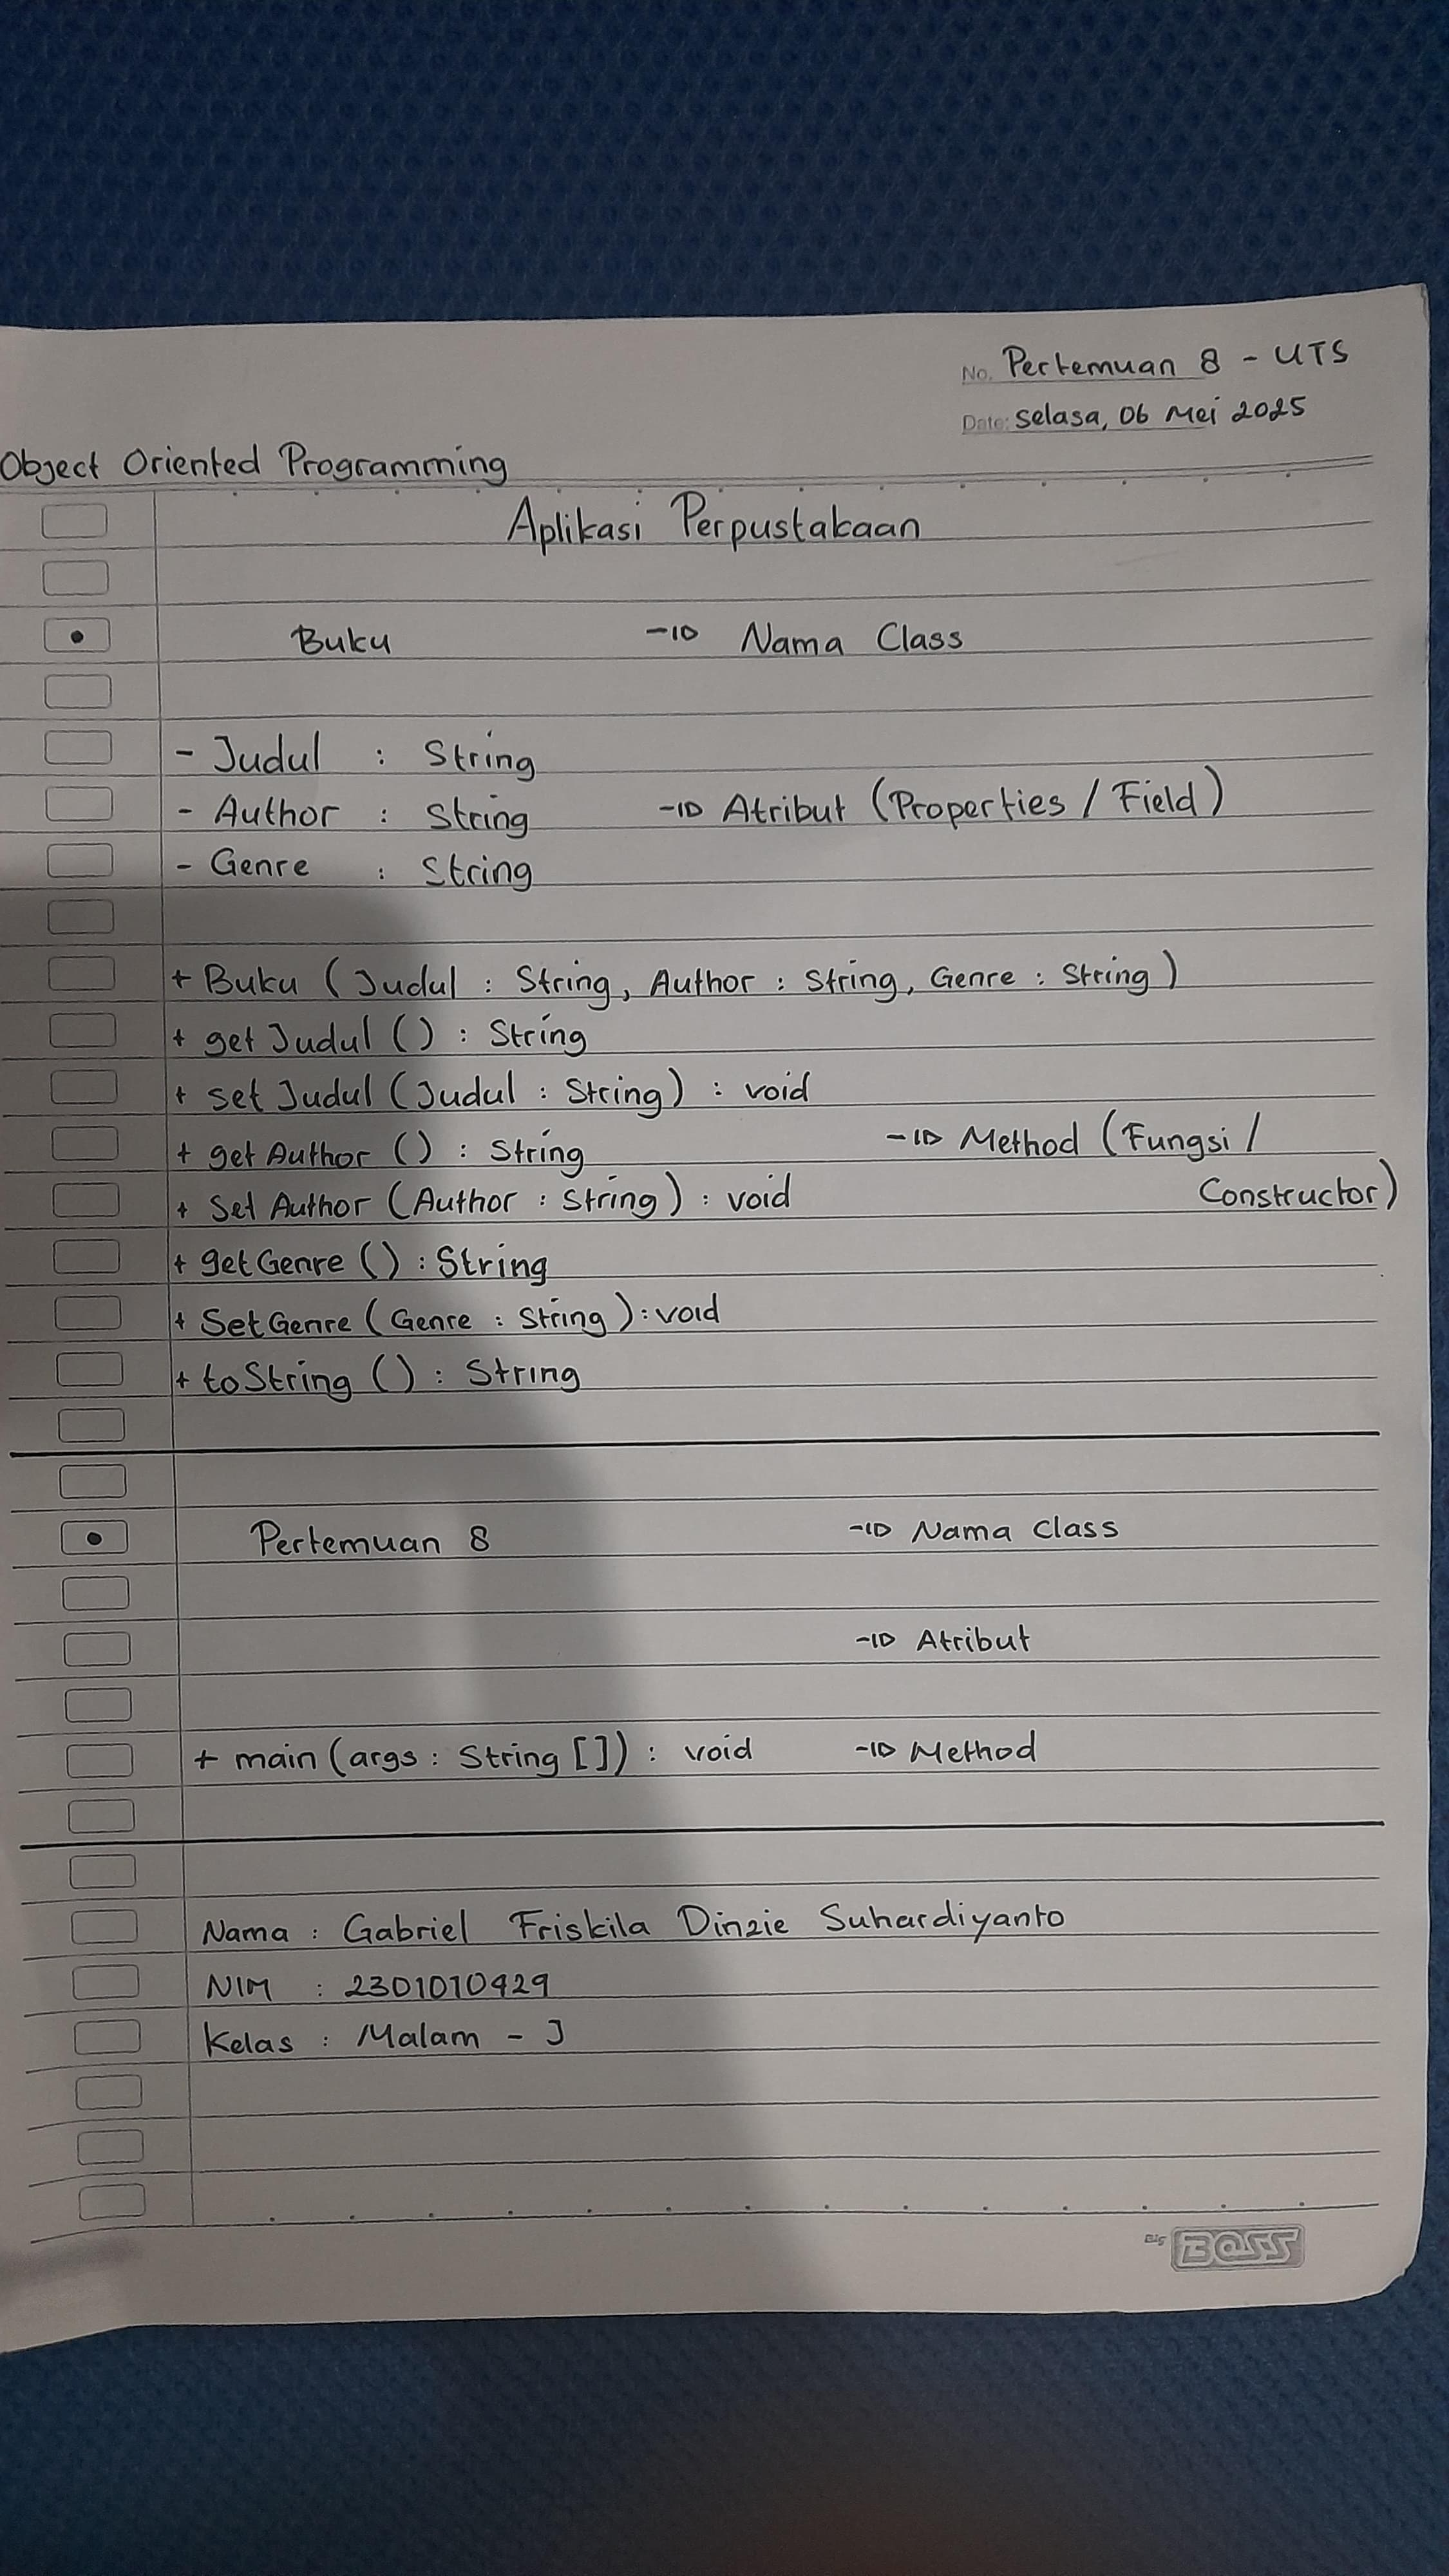 No. Pertemuan 8 - UTS
Date: Selasa, 06 Mei 2025
Object Oriented Programming
Aplikasi Perpustakaan
Buku -▷ Nama Class
- Judul : String
- Author : String -▷ Atribut (Properties / Field)
- Genre : String
+ Buku (Judul : String, Author : String, Genre : String)
+ getJudul () : String
+ setJudul (Judul : String) : void
+ getAuthor () : String -▷ Method (Fungsi /
+ SetAuthor (Author : String) : void Constructor)
+ getGenre () : String
+ SetGenre (Genre : String) : void
+ toString () : String
Pertemuan 8 -▷ Nama Class
-▷ Atribut
+ main (args : String []) : void -▷ Method
Nama : Gabriel Friskila Dinzie Suhardiyanto
NIM : 2301010429
Kelas : Malam - J
Big BOSS